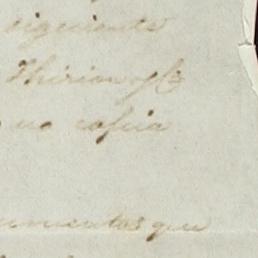 siguiente
Thirion y Ca
no copia
umentos que